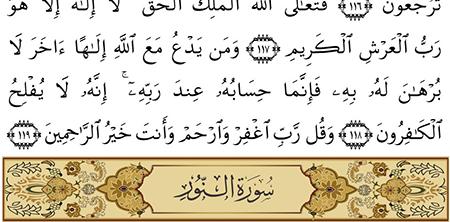 تُرْجَعُونَ ﴿١١٦﴾ فَتَعَٰلَى ٱللَّهُ ٱلْمَلِكُ ٱلْحَقُّ ۖ لَآ إِلَٰهَ إِلَّا هُوَ
رَبُّ ٱلْعَرْشِ ٱلْكَرِيمِ ﴿١١٧﴾ وَمَن يَدْعُ مَعَ ٱللَّهِ إِلَٰهًا ءَاخَرَ لَا
بُرْهَٰنَ لَهُۥ بِهِۦ فَإِنَّمَا حِسَابُهُۥ عِندَ رَبِّهِۦٓ ۚ إِنَّهُۥ لَا يُفْلِحُ
ٱلْكَٰفِرُونَ ﴿١١٨﴾ وَقُل رَّبِّ ٱغْفِرْ وَٱرْحَمْ وَأَنتَ خَيْرُ ٱلرَّٰحِمِينَ ﴿١١٩﴾
سُورَةُ النُّورِ